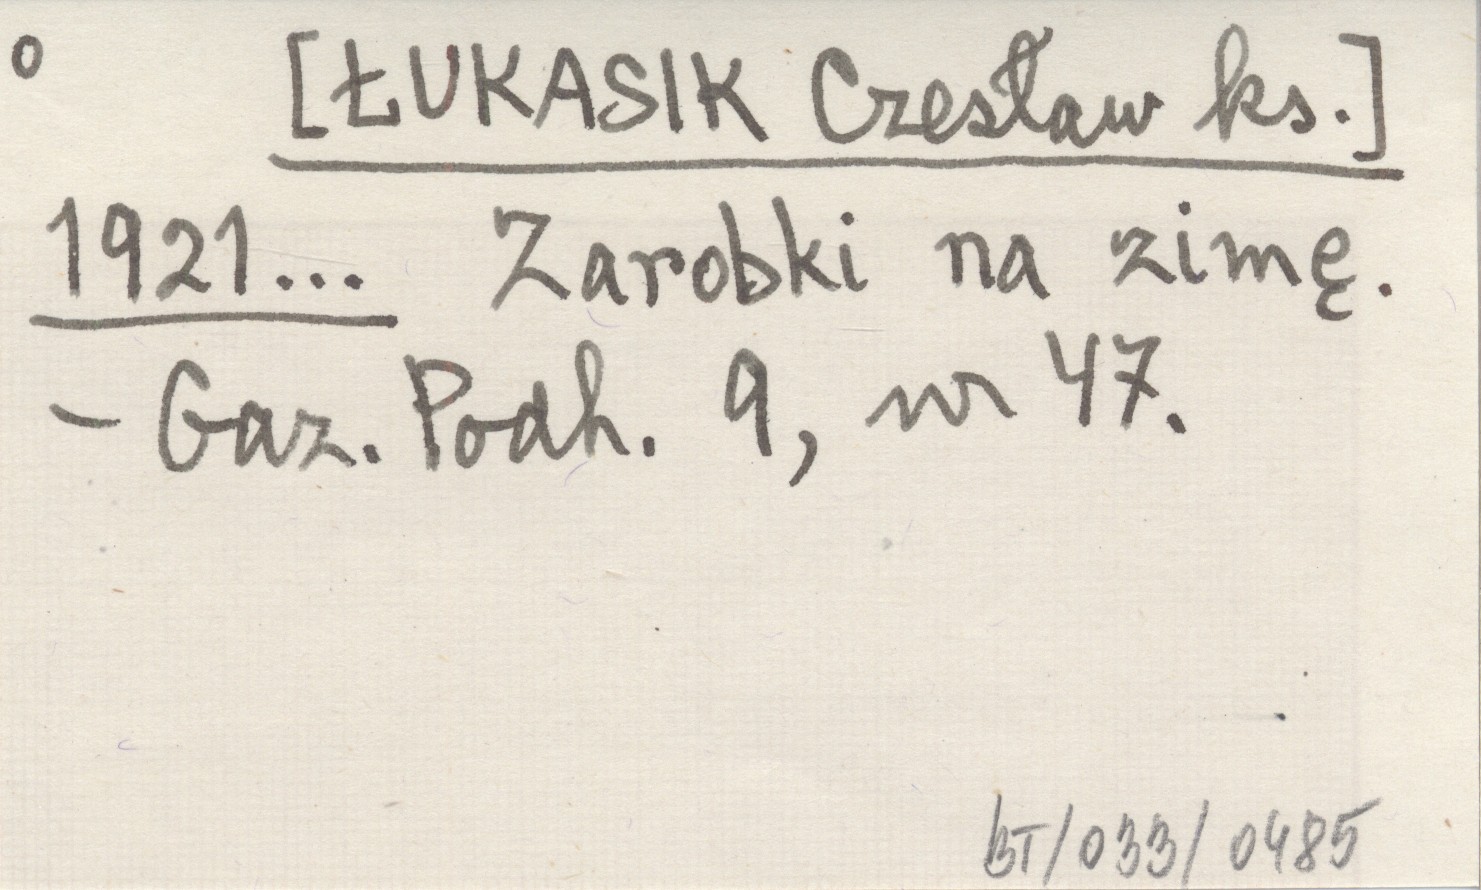 o [ŁUKASIK Czesław ks.]
1921... Zarobki na zimę.
- Gaz. Podh. 9, nr 47.
BT/033/0485